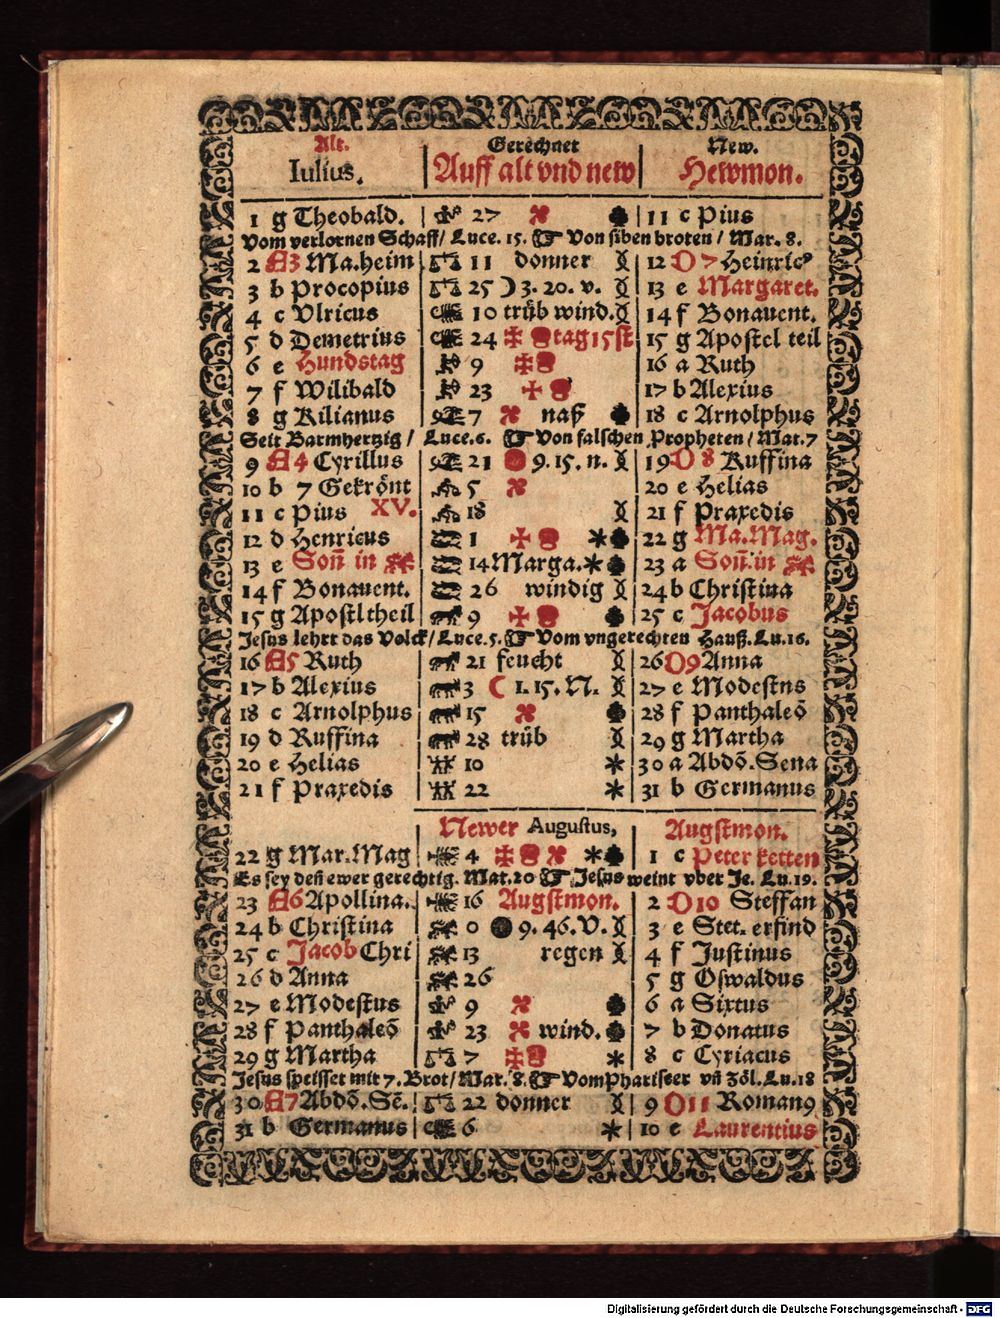 Alt. Gerechnet New.
Iulius. Auff alt vnd new Hewmon.
1 g Theobald. 27 11 c Pius
Vom verlornen Schaff/ Luce. 15. Von siben broten / Mar. 8.
2 A3 Ma.heim 11 donner 12 D 7 Heinric9
3 b Procopius 25 ) 3. 20. v. 13 e Margaret.
4 c Vlricus 10 trüb wind. 14 f Bonauent.
5 d Demetrius 24 tag 15 st 15 g Apostel teil
6 e Hundstag 9 16 a Ruth
7 f Wilibald 23 17 b Alexius
8 g Kilianus 7 naß 18 c Arnolphus
Seit Barmhertzig / Luce.6. Von falschen Propheten / Mat.7
9 A4 Cyrillus 21 9. 15. n. 19 D 8 Ruffina
10 b 7 Gekrönt 5 20 e Helias
11 c Pius XV. 18 21 f Praxedis
12 d Henricus 1 22 g Ma. Mag.
13 e Soñ in 14 Marga. 23 a Soñ. in
14 f Bonauent. 26 windig 24 b Christina
15 g Apostltheil 9 25 c Jacobus
Jesus lehrt das Volck/ Luce. 5. Vom vngerechten Hauß. Lu. 16.
16 A5 Ruth 21 feucht 26 D9 Anna
17 b Alexius 3 1. 15. N. 27 e Modestns
18 c Arnolphus 15 28 f Panthaleõ
19 d Ruffina 28 trüb 29 g Martha
20 e Helias 10 30 a Abdõ. Sena
21 f Praxedis 22 31 b Germanus
Newer Augustus, Augstmon.
22 g Mar. Mag 4 1 c Peter ketten
Es sey deñ ewer gerechtig. Mat. 20 Jesus weint vber Je. Lu. 19.
23 A6 Apollina. 16 Augstmon. 2 D10 Steffan
24 b Christina 0 9. 46. V. 3 e Stet. erfind
25 c Jacob Chri 13 regen 4 f Justinus
26 d Anna 26 5 g Oswaldus
27 e Modestus 9 6 a Sixtus
28 f Panthaleõ 23 wind. 7 b Donatus
29 g Martha 7 8 c Cyriacus
Jesus speisset mit 7. Brot/ Mar. 8. Vom Phariseer vñ Zöl. Lu. 18
30 A7 Abdõ. Sẽ. 22 donner 9 D11 Roman9
31 b Germanus 6 10 e Laurentius
Digitalisierung gefördert durch die Deutsche Forschungsgemeinschaft - DFG